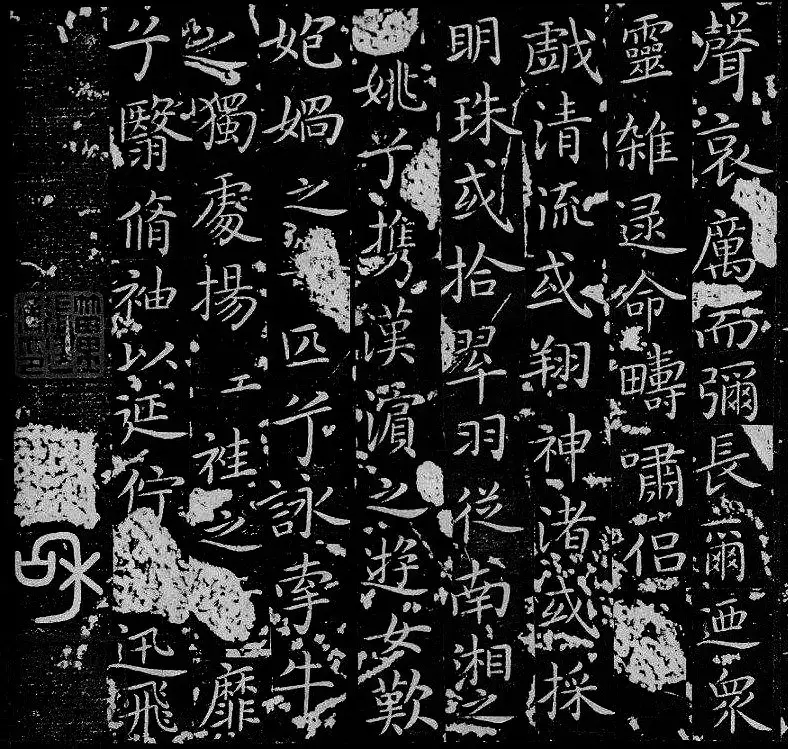 聲哀厲而彌長爾迺衆
靈雜遝命疇嘯侶
戯清流或翔神渚或採
明珠或拾翠羽從南湘之
姚兮携漢濱之遊女歎
匏媧之匹兮詠牽牛
之獨處揚袿之靡
兮翳脩袖以延佇迅飛